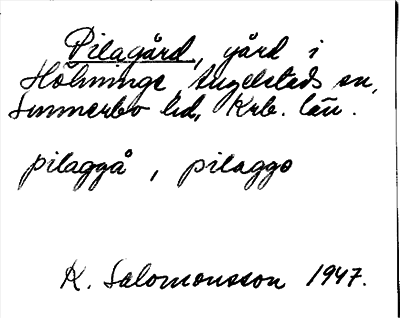 Pilagård, gård i
Holminge, Angelstads sn,
Sunnerbo hd, Krb. län.
pilaggå, pilaggo
K. Salomonsson 1947.